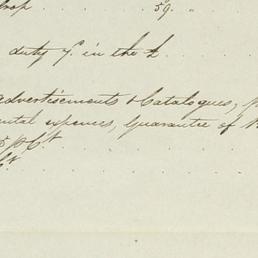 59. "
duty 7.d in the £
advertisements & Catalogues, p
ental expences, Guarantee of
5 p C.t
C.t